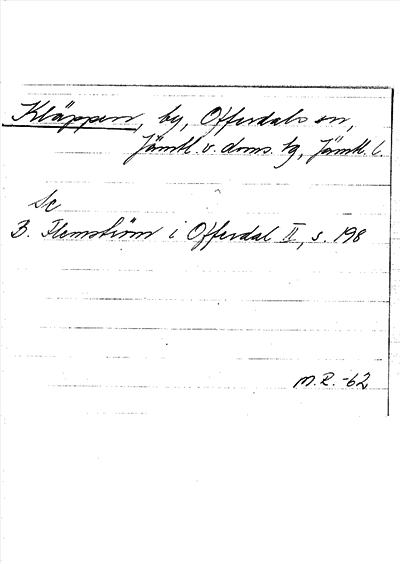 Kläppen, by, Offerdals sn,
Jämtl. v. doms. tg, Jämtl. l.
Se
B. Flemström i Offerdal II, s. 198
M.R.-62